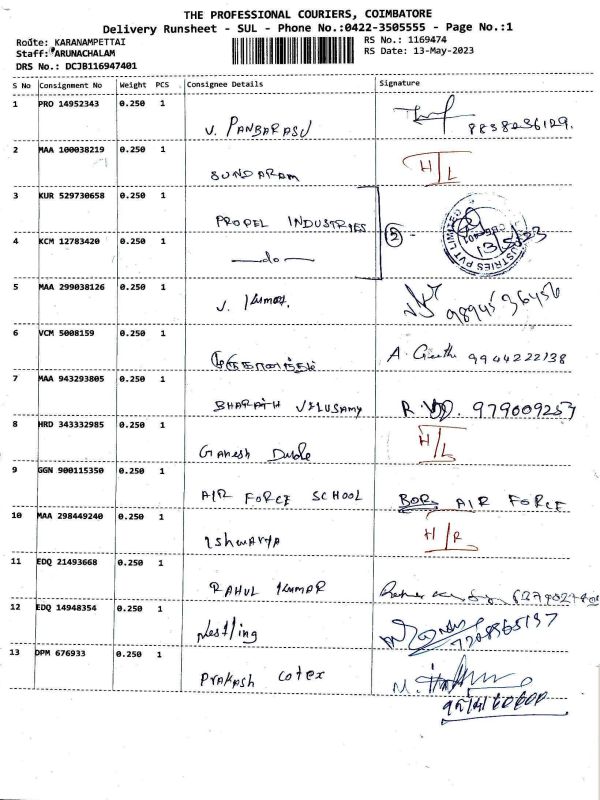 THE PROFESSIONAL COURIERS, COIMBATORE
Delivery Runsheet - SUL - Phone No.:0422-3505555 - Page No.:1
Route: KARANAMPETTAI
RS No.: 1169474
Staff: ARUNACHALAM
RS Date: 13-May-2023
DRS No.: DCJB116947401
S No Consignment No Weight PCS Consignee Details Signature
1 PRO 14952343 0.250 1
V. PANBARASU 8838236129.
2 MAA 100038219 0.250 1
SUNDARAM H/L
3 KUR 529730658 0.250 1
PROPEL INDUSTRIES
2
4 KCM 12783420 0.250 1
—do—
5 MAA 299038126 0.250 1
V. Kumar. 98945 36456
6 VCM 5008159 0.250 1
A. Geetha 9944222138
7 MAA 943293805 0.250 1
BHARATH VELUSAMY 979009257
8 HRD 343332985 0.250 1
Ganesh H/L
9 GGN 900115350 0.250 1
AIR FORCE SCHOOL BOR, AIR FORCE
10 MAA 298449240 0.250 1
Ishwarya H/R
11 EDQ 21493668 0.250 1
RAHUL KUMAR
12 EDQ 14948354 0.250 1
Nestling 7208365137
13 DPM 676933 0.250 1
Prakash Cotex